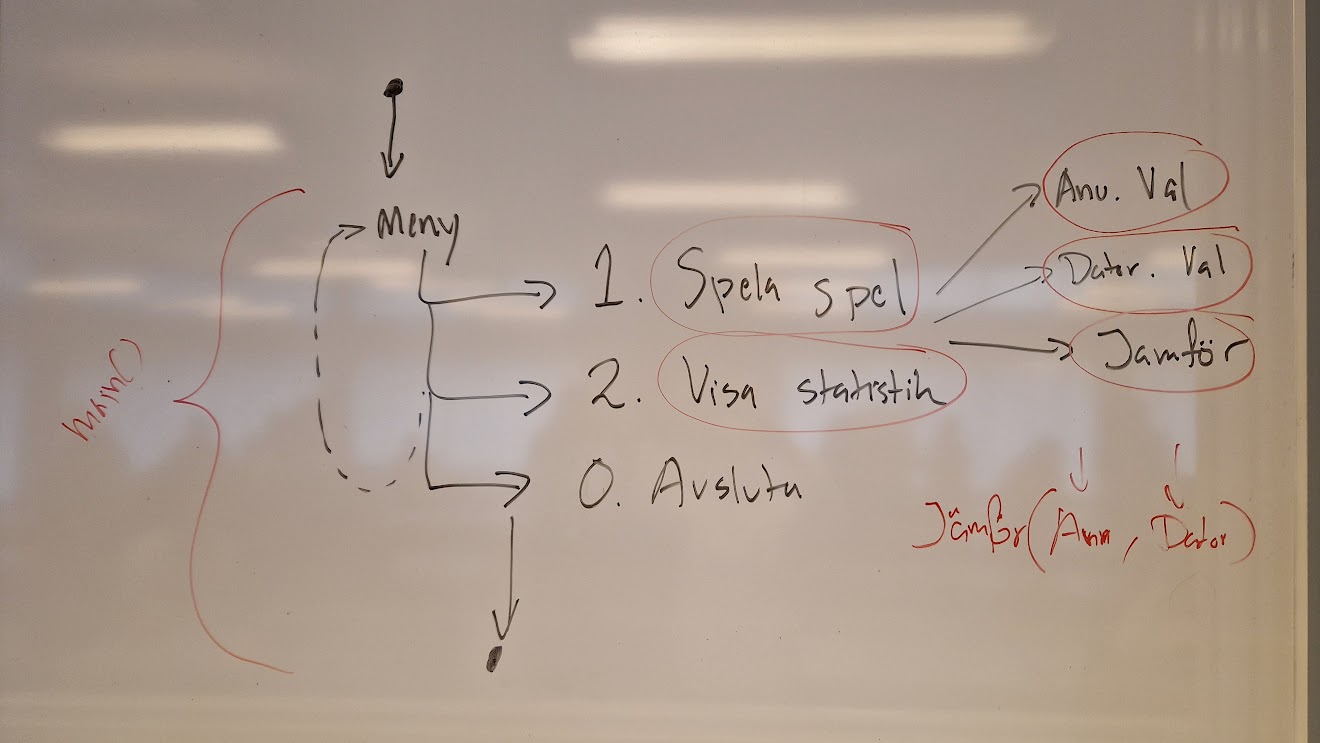 Meny
1. Spela spel
2. Visa statistik
0. Avsluta
Anv. Val
Dator. Val
Jämför
Jämför(Anv, Dator)
main()